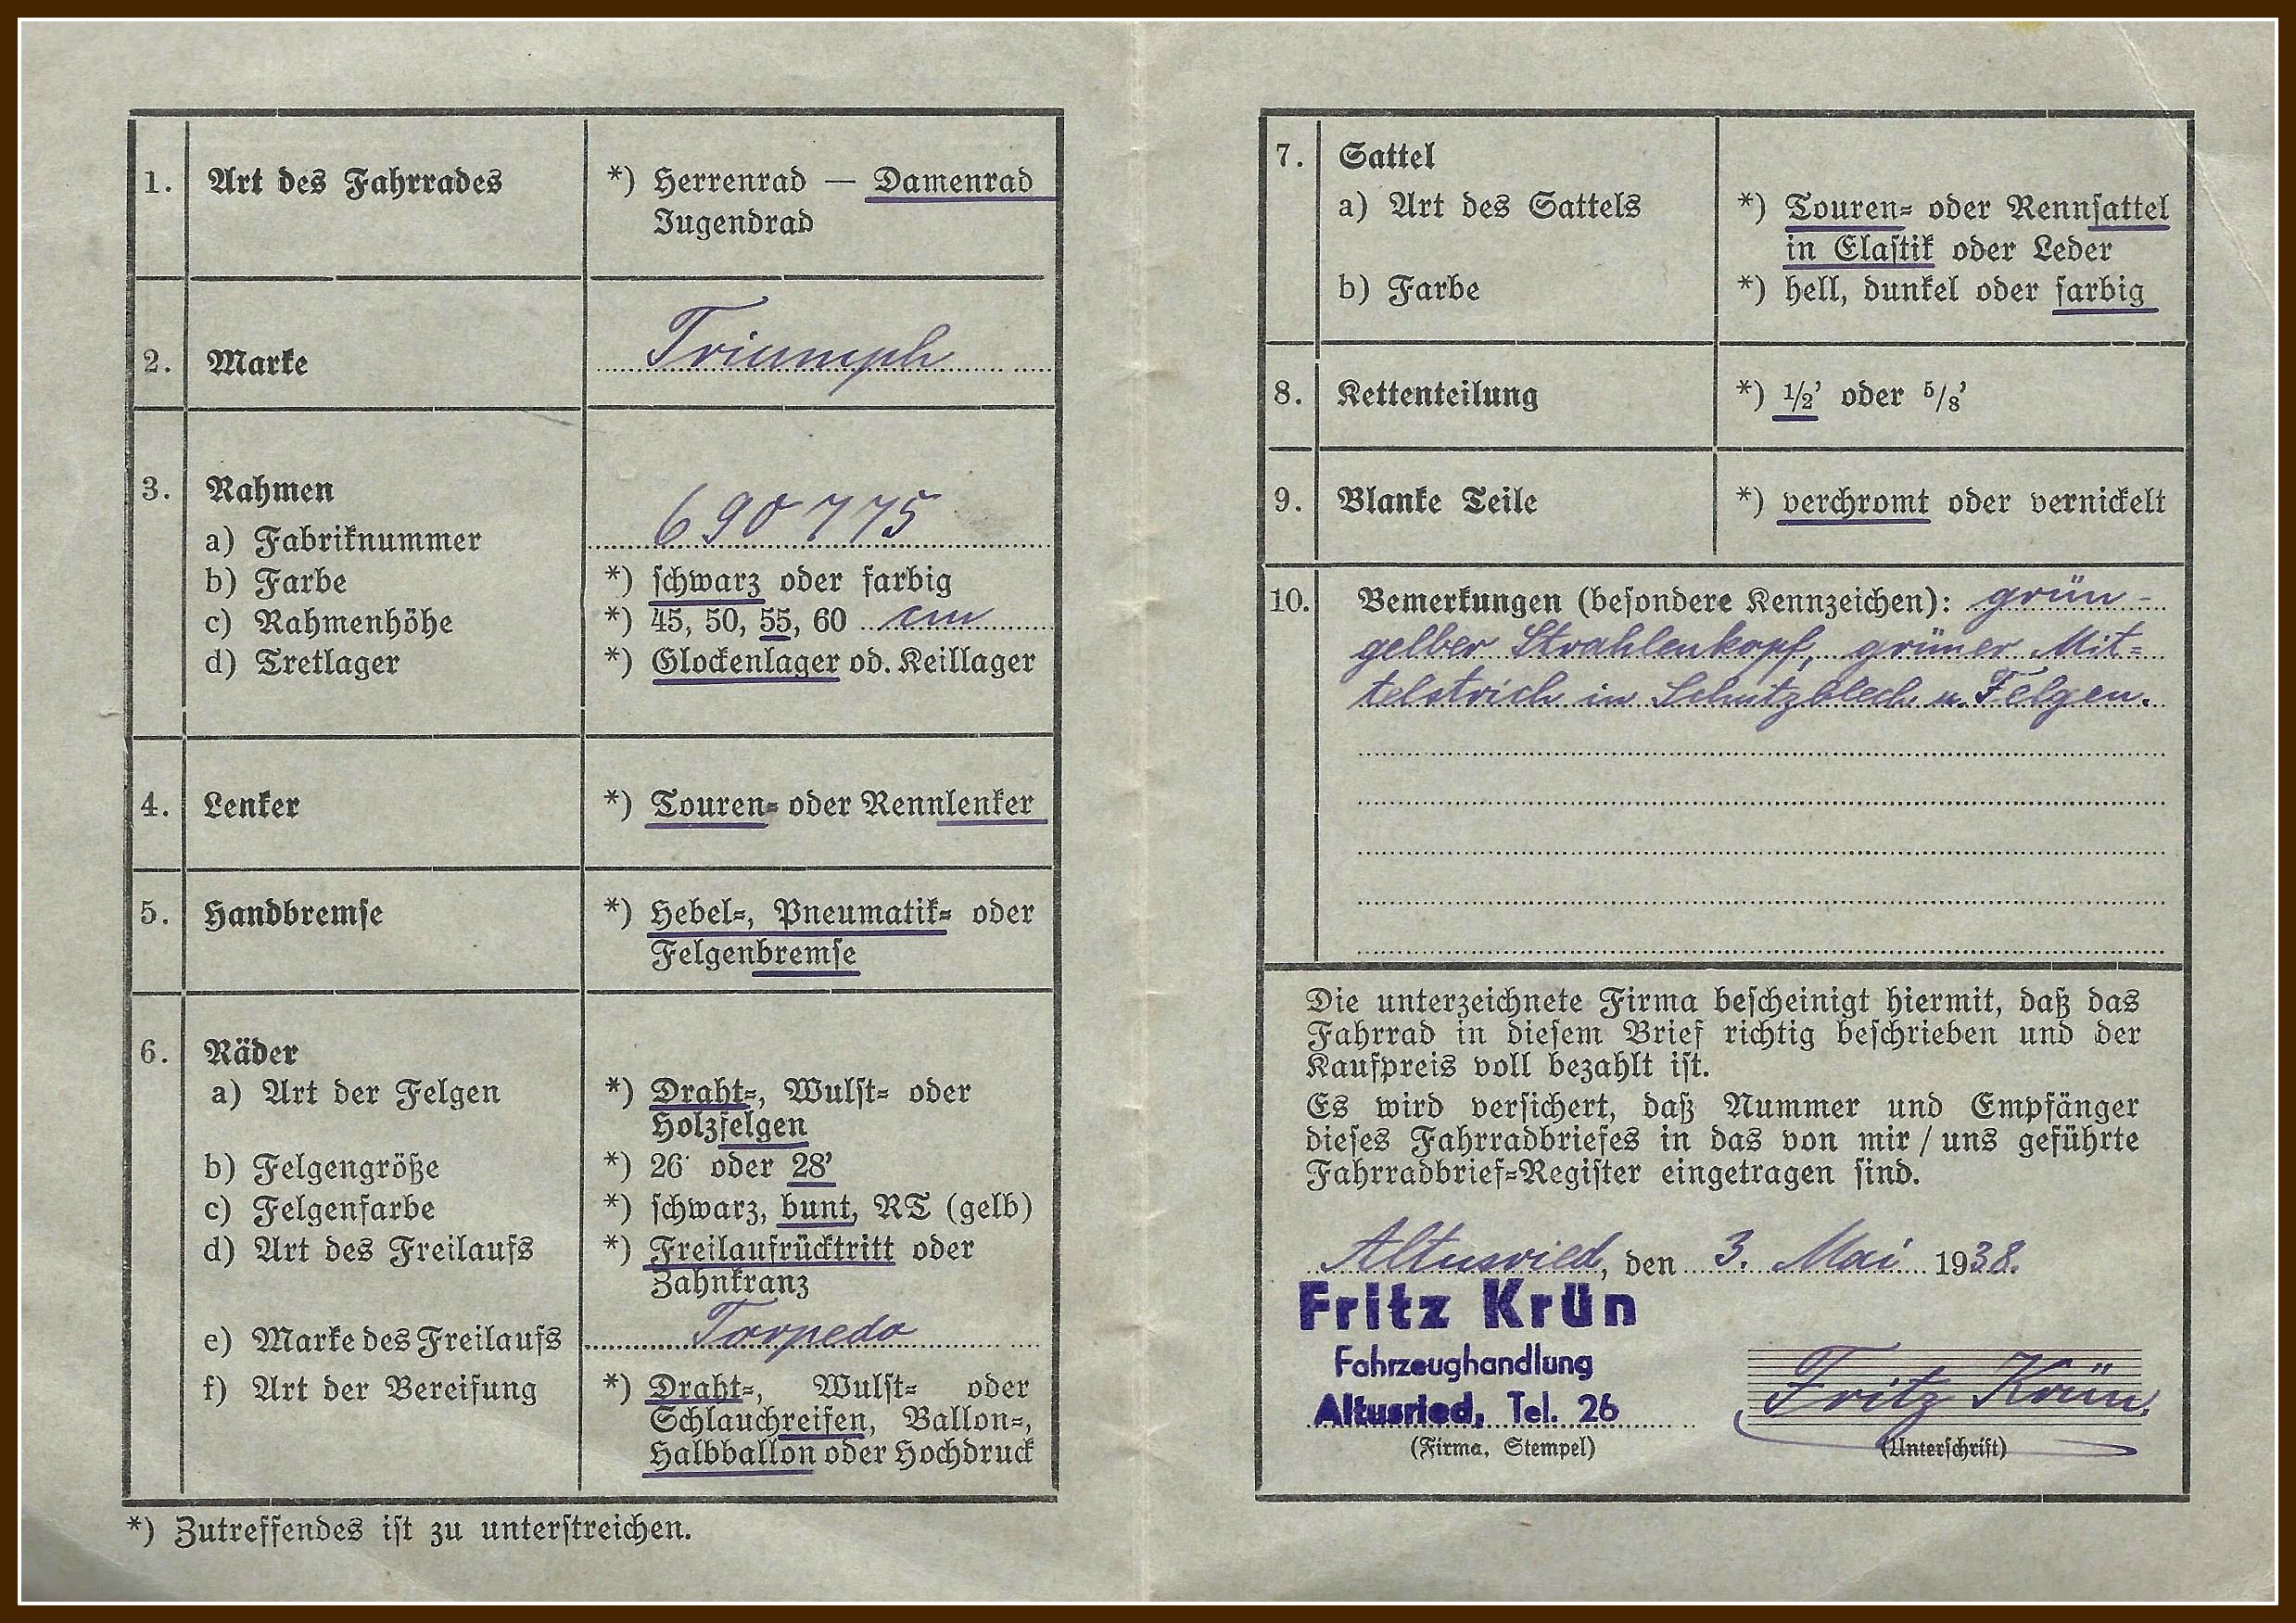 1. Art des Fahrrades *) Herrenrad — Damenrad
Jugendrad
2. Marke Triumph
3. Rahmen
a) Fabriknummer 690775
b) Farbe *) schwarz oder farbig
c) Rahmenhöhe *) 45, 50, 55, 60 cm
d) Tretlager *) Glockenlager od. Keillager
4. Lenker *) Touren- oder Rennlenker
5. Handbremse *) Hebel-, Pneumatik- oder
Felgenbremse
6. Räder
a) Art der Felgen *) Draht-, Wulst- oder
Holzfelgen
b) Felgengröße *) 26' oder 28'
c) Felgenfarbe *) schwarz, bunt, RT (gelb)
d) Art des Freilaufs *) Freilaufrücktritt oder
Zahnkranz
e) Marke des Freilaufs Torpedo
f) Art der Bereifung *) Draht-, Wulst- oder
Schlauchreifen, Ballon-,
Halbballon oder Hochdruck
*) Zutreffendes ist zu unterstreichen.
7. Sattel
a) Art des Sattels *) Touren- oder Rennsattel
in Elastik oder Leder
b) Farbe *) hell, dunkel oder farbig
8. Kettenteilung *) 1/2' oder 5/8'
9. Blanke Teile *) verchromt oder vernickelt
10. Bemerkungen (besondere Kennzeichen): grün-
gelber Strahlenkopf, grüner Mit=
telstrich in Schutzblech u. Felgen.
Die unterzeichnete Firma bescheinigt hiermit, daß das
Fahrrad in diesem Brief richtig beschrieben und der
Kaufpreis voll bezahlt ist.
Es wird versichert, daß Nummer und Empfänger
dieses Fahrradbriefes in das von mir / uns geführte
Fahrradbrief-Register eingetragen sind.
Altusried, den 3. Mai 1938.
Fritz Krün
Fahrzeughandlung
Altusried, Tel. 26 Fritz Krün.
(Firma, Stempel) (Unterschrift)